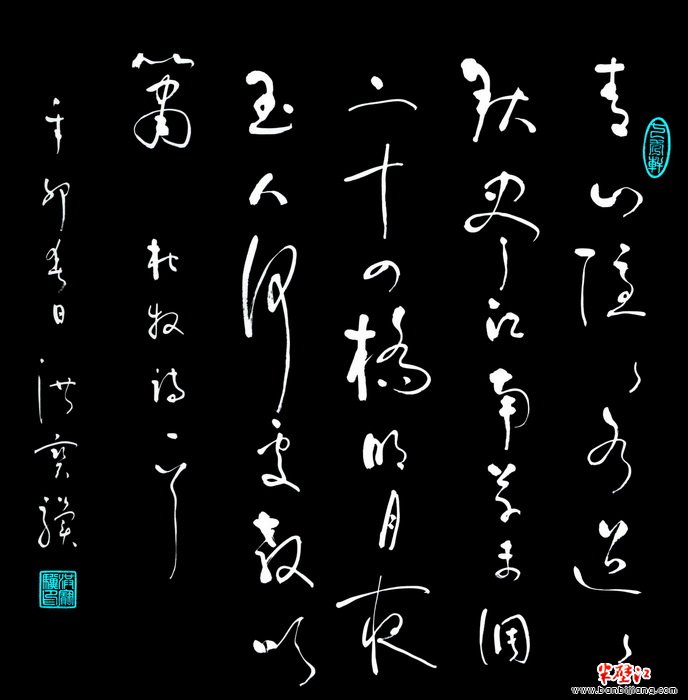 青山隱々水迢々
秋盡江南草未凋
二十四橋明月夜
玉人何處教吹
簫 杜牧詩一首
辛卯春日 洪寶驥
洪寶驥印
半壁江
www.banbijiang.com